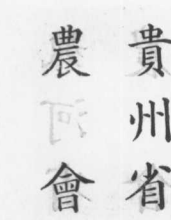 貴州省
農會